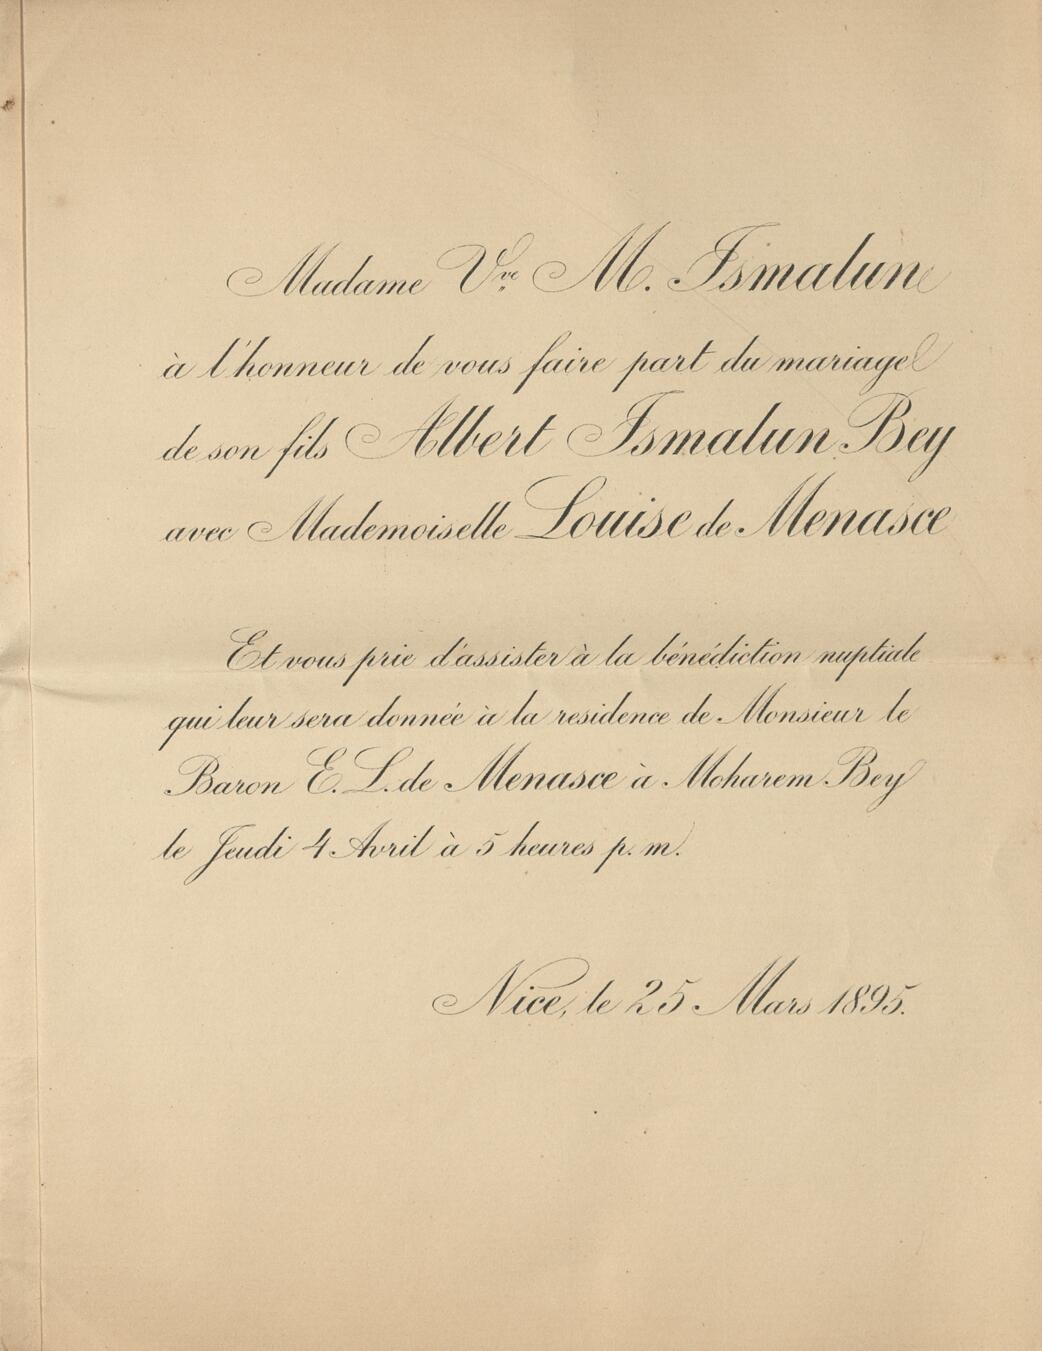 Madame Vve M. Ismalun
à l'honneur de vous faire part du mariage
de son fils Albert Ismalun Bey
avec Mademoiselle Louise de Menasce
Et vous prie d'assister à la bénédiction nuptiale
qui leur sera donnée à la residence de Monsieur le
Baron E. L. de Menasce à Moharem Bey
le Jeudi 4 Avril à 5 heures p. m.
Nice, le 25 Mars 1895.